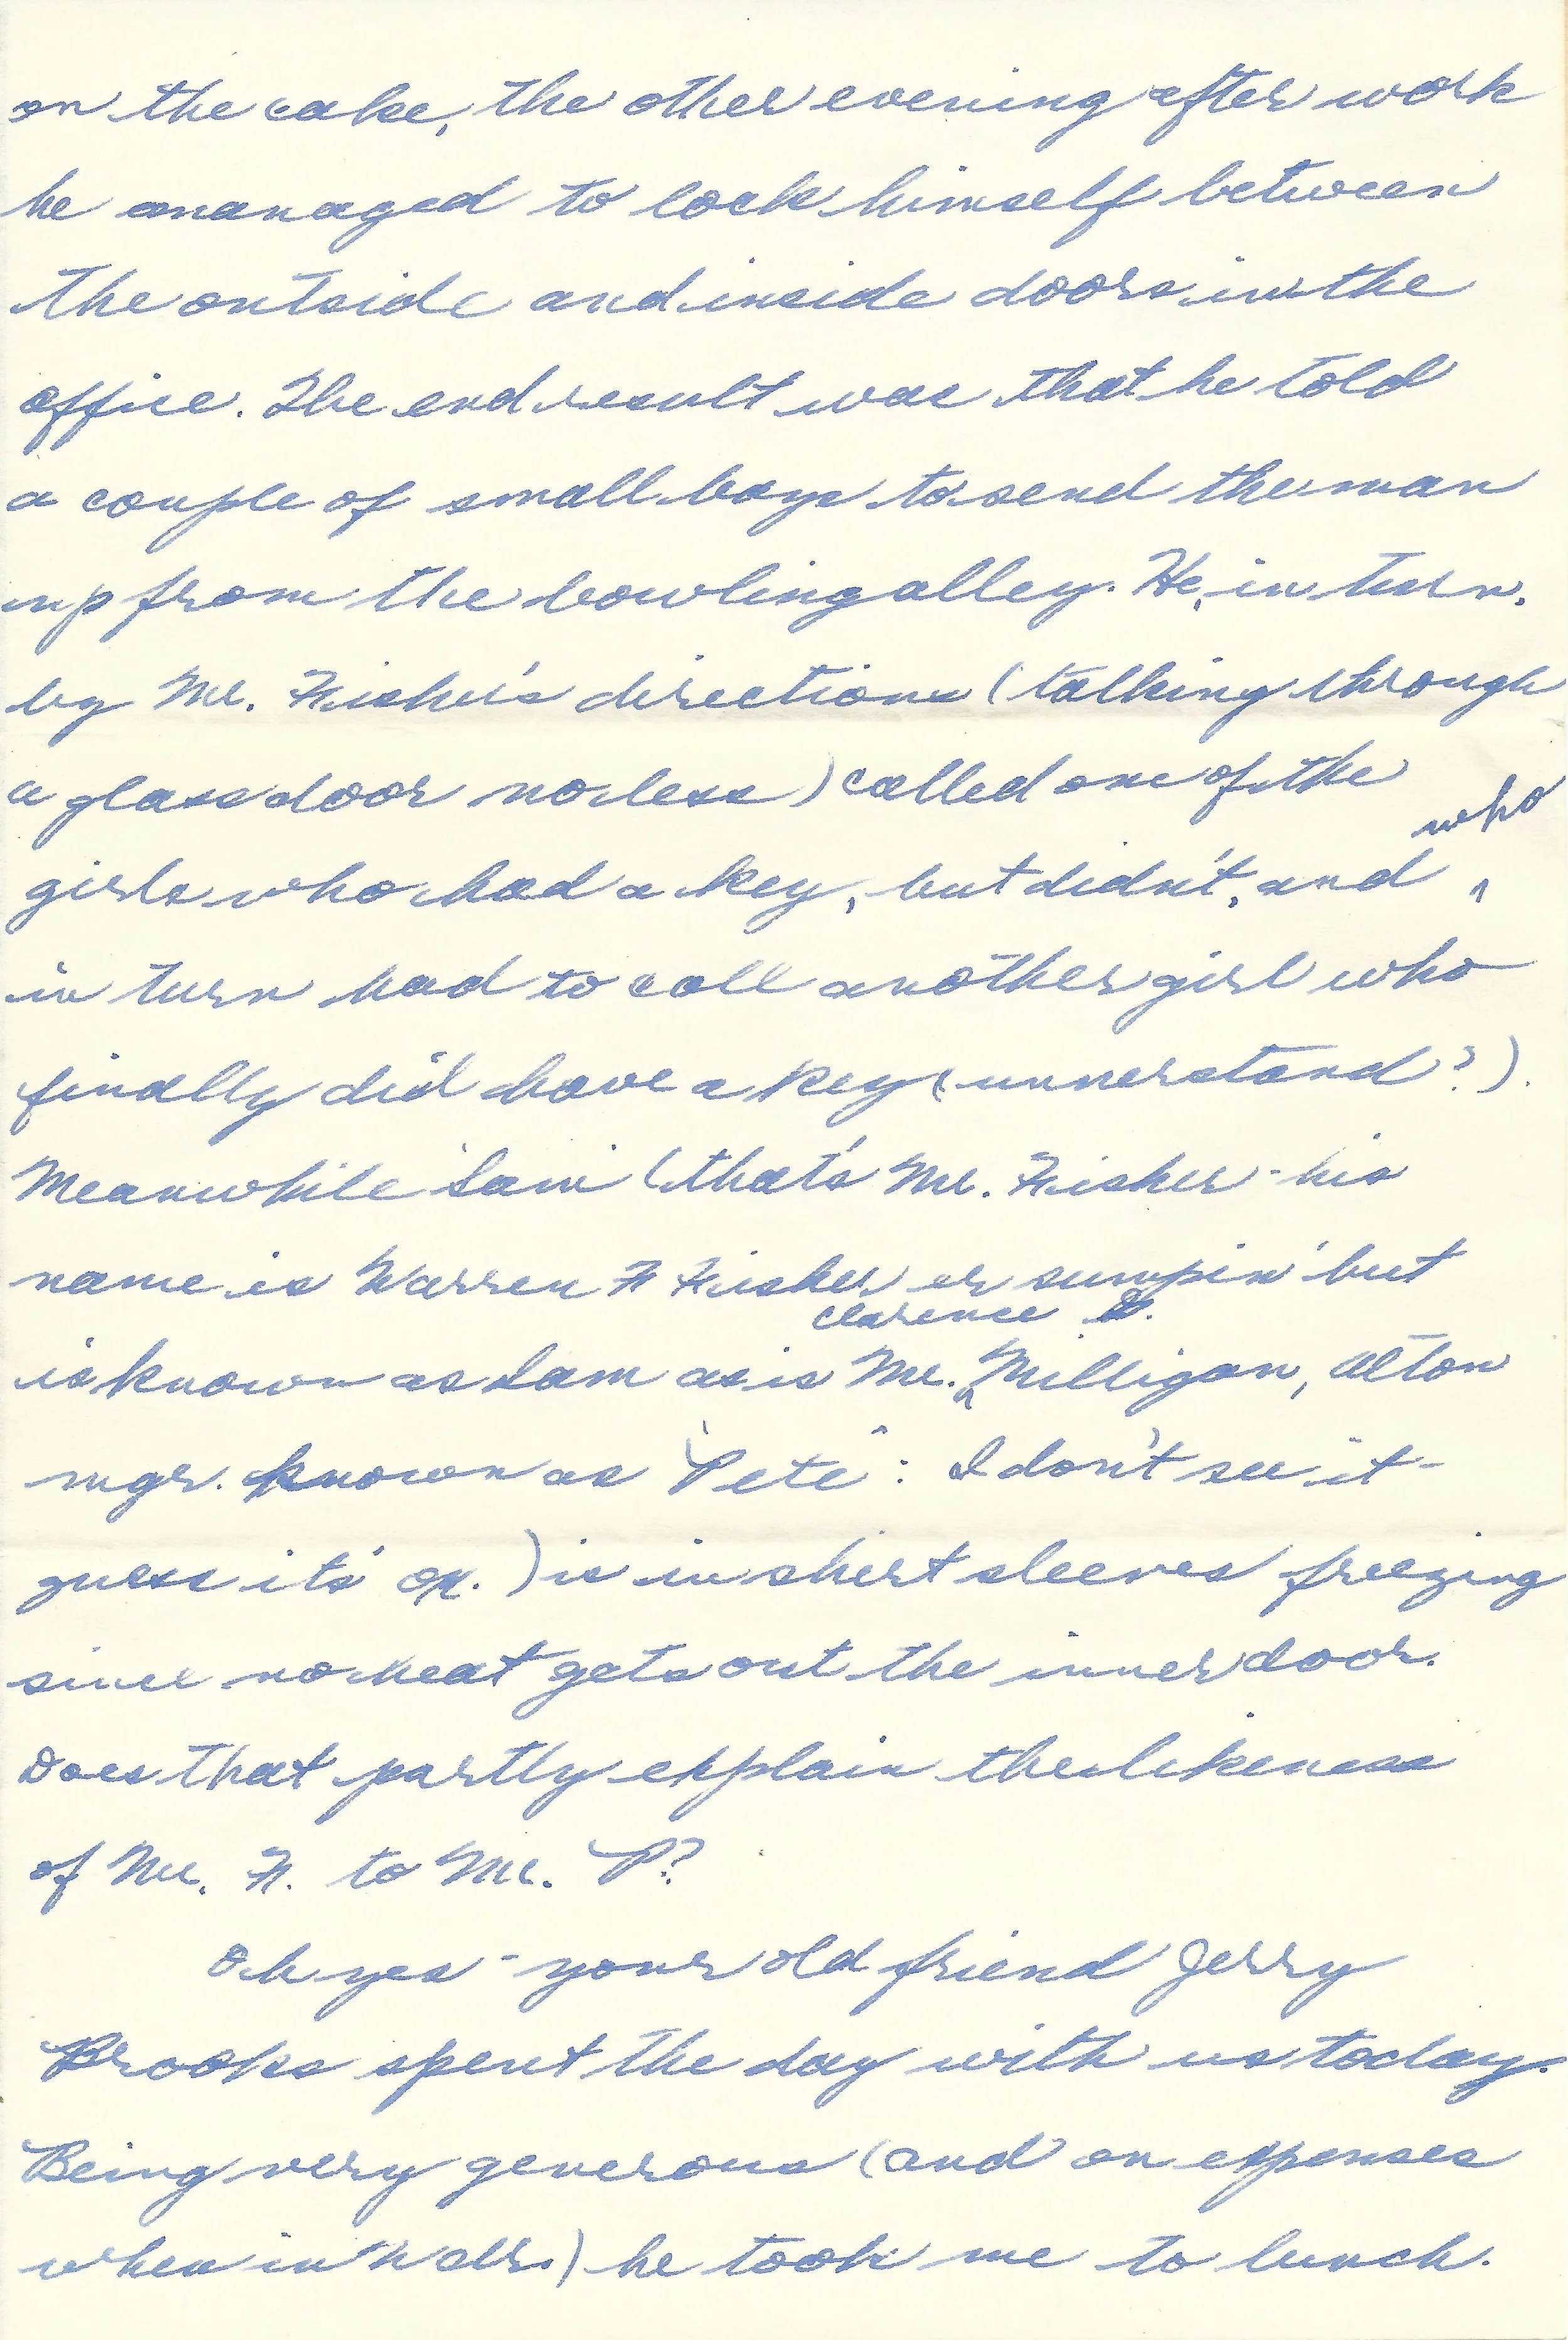 on the cake, the other evening after work
he managed to lock himself between
the outside and inside doors in the
office. The end result was that he told
a couple of small boys to send the man
up from the bowling alley. He, in turn,
by Mr. Fisher's directions (talking through
a glass door no less) called one of the
girls who had a key, but didn't, and who
in turn had to call another girl who
finally did have a key (unnerstand?).
Meanwhile Sam (that's Mr. Fisher - his
name is Warren F Fisher or sumpin' but
is known as Sam as is Mr. Clarence Milligan, Alton
mgr. known as "Pete": I don't see it -
guess it's ok.) is in shirt sleeves freezing
since no heat gets out the inner door.
Does that partly explain the likeness
of Mr. F. to Mr. P?
Oh yes - your old friend Jerry
Brooks spent the day with us today.
Being very generous (and on expenses
when in) he took me to lunch.